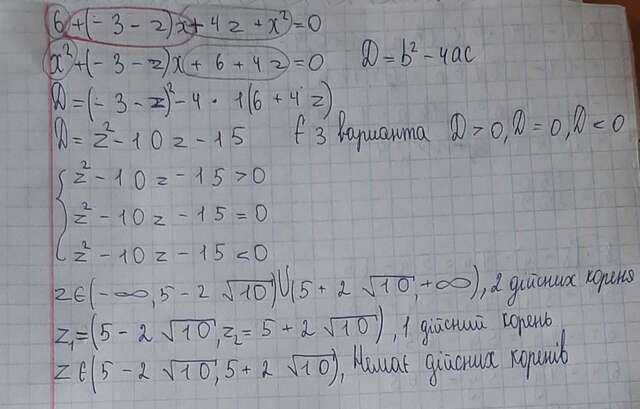 6+(-3-z)x+4z+x²=0
x²+(-3-z)x+6+4z=0 D=b²-4ac
D=(-3-z)²-4·1(6+4z)
D=z²-10z-15 Є 3 варианта D>0, D=0, D<0
z²-10z-15>0
z²-10z-15=0
z²-10z-15<0
zЄ(-∞,5-2√10)U(5+2√10,+∞), 2 дійсних кореня
z₁=(5-2√10, z₂=5+2√10), 1 дійсний корень
zЄ(5-2√10, 5+2√10), Немає дійсних коренів